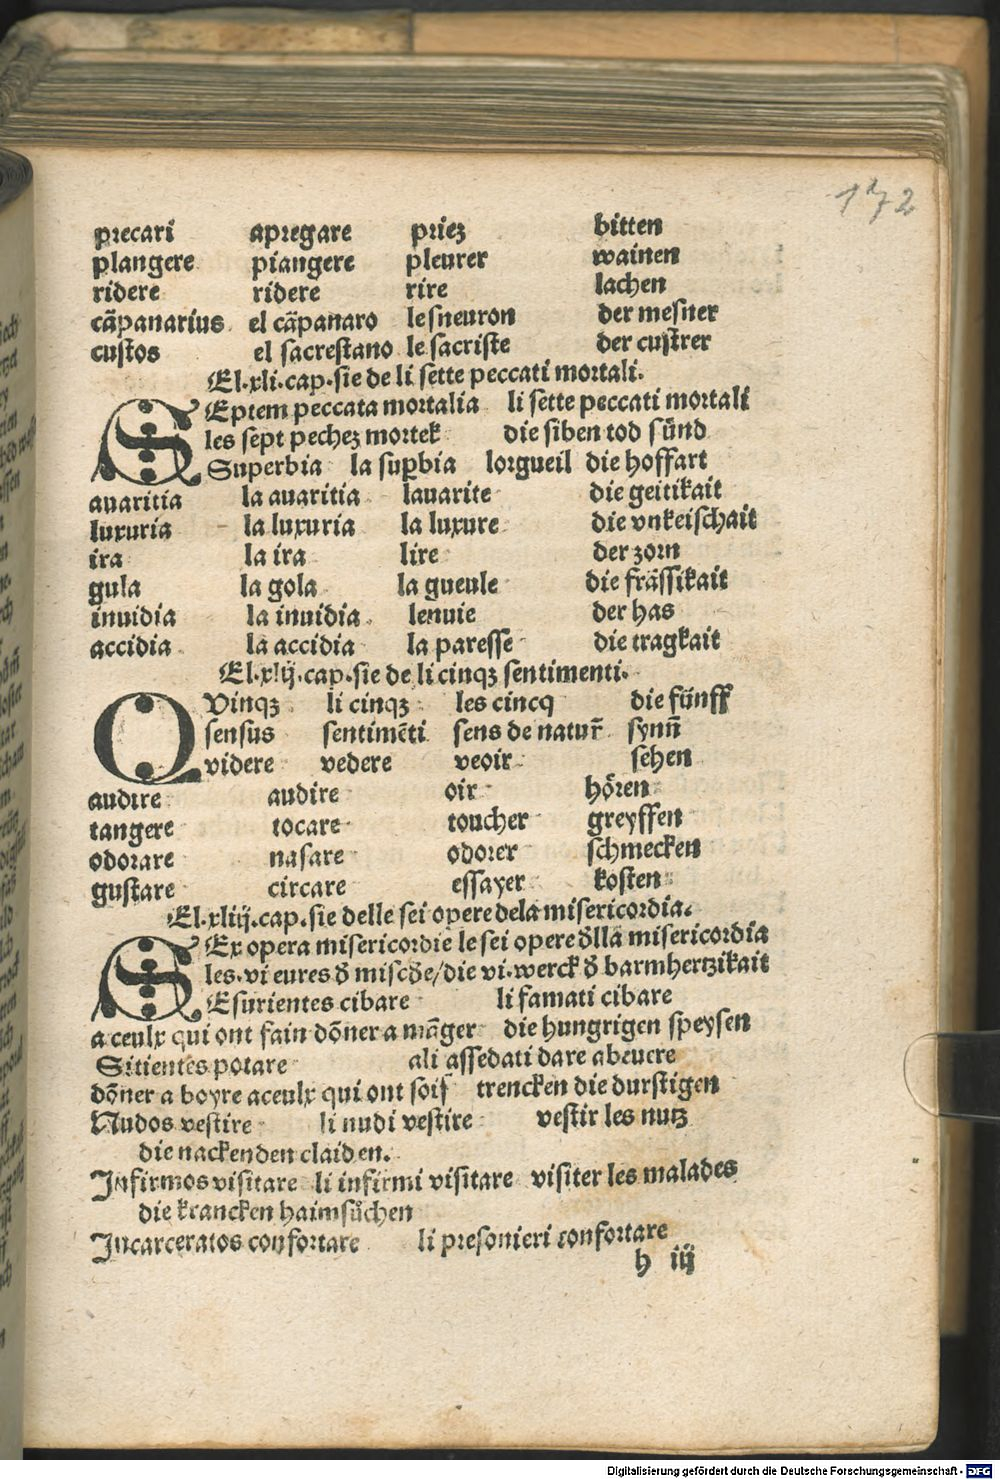 172
precari apregare priez bitten
plangere piangere pleurer wainen
ridere ridere rire lachen
cāpanarius el cāpanaro le sneuron der mesner
custos el sacrestano le sacriste der custrer
El.xli.cap.sie de li sette peccati mortali.
SEptem peccata mortalia li sette peccati mortali
les sept pechez mortek die siben tod sünd
Superbia la suꝑbia lorgueil die hoffart
auaritia la auaritia lauarite die geitikait
luxuria la luxuria la luxure die vnkeischait
ira la ira lire der zorn
gula la gola la gueule die frässikait
inuidia la inuidia lenuie der has
accidia la accidia la paresse die tragkait
El.xlij.cap.sie de li cinqz sentimenti.
QVinqz li cinqz les cincq die fünff
sensus sentimēti sens de natur̄ synn̄
videre vedere veoir sehen
audire audire oir hören
tangere tocare toucher greyffen
odorare nasare odorer schmecken
gustare circare essayer kosten
El.xliij.cap.sie delle sei opere dela misericordia.
SEx opera misericordie le sei opere d̄lla misericordia
les.vi eures d̄ miscd̄e/die vi.werck d̄ barmhertzikait
Esurientes cibare li famati cibare
a ceulx qui ont fain dōner a māger die hungrigen speysen
Sitientes potare ali assedati dare abeuere
dōner a boyre aceulx qui ont soif trencken die durstigen
Nudos vestire li nudi vestire vestir les nutz
die nackenden claiden.
Infirmos visitare li infirmi visitare visiter les malades
die krancken haimsůchen
Incarceratos confortare li presonieri confortare
h iij
Digitalisierung gefördert durch die Deutsche Forschungsgemeinschaft - DFG